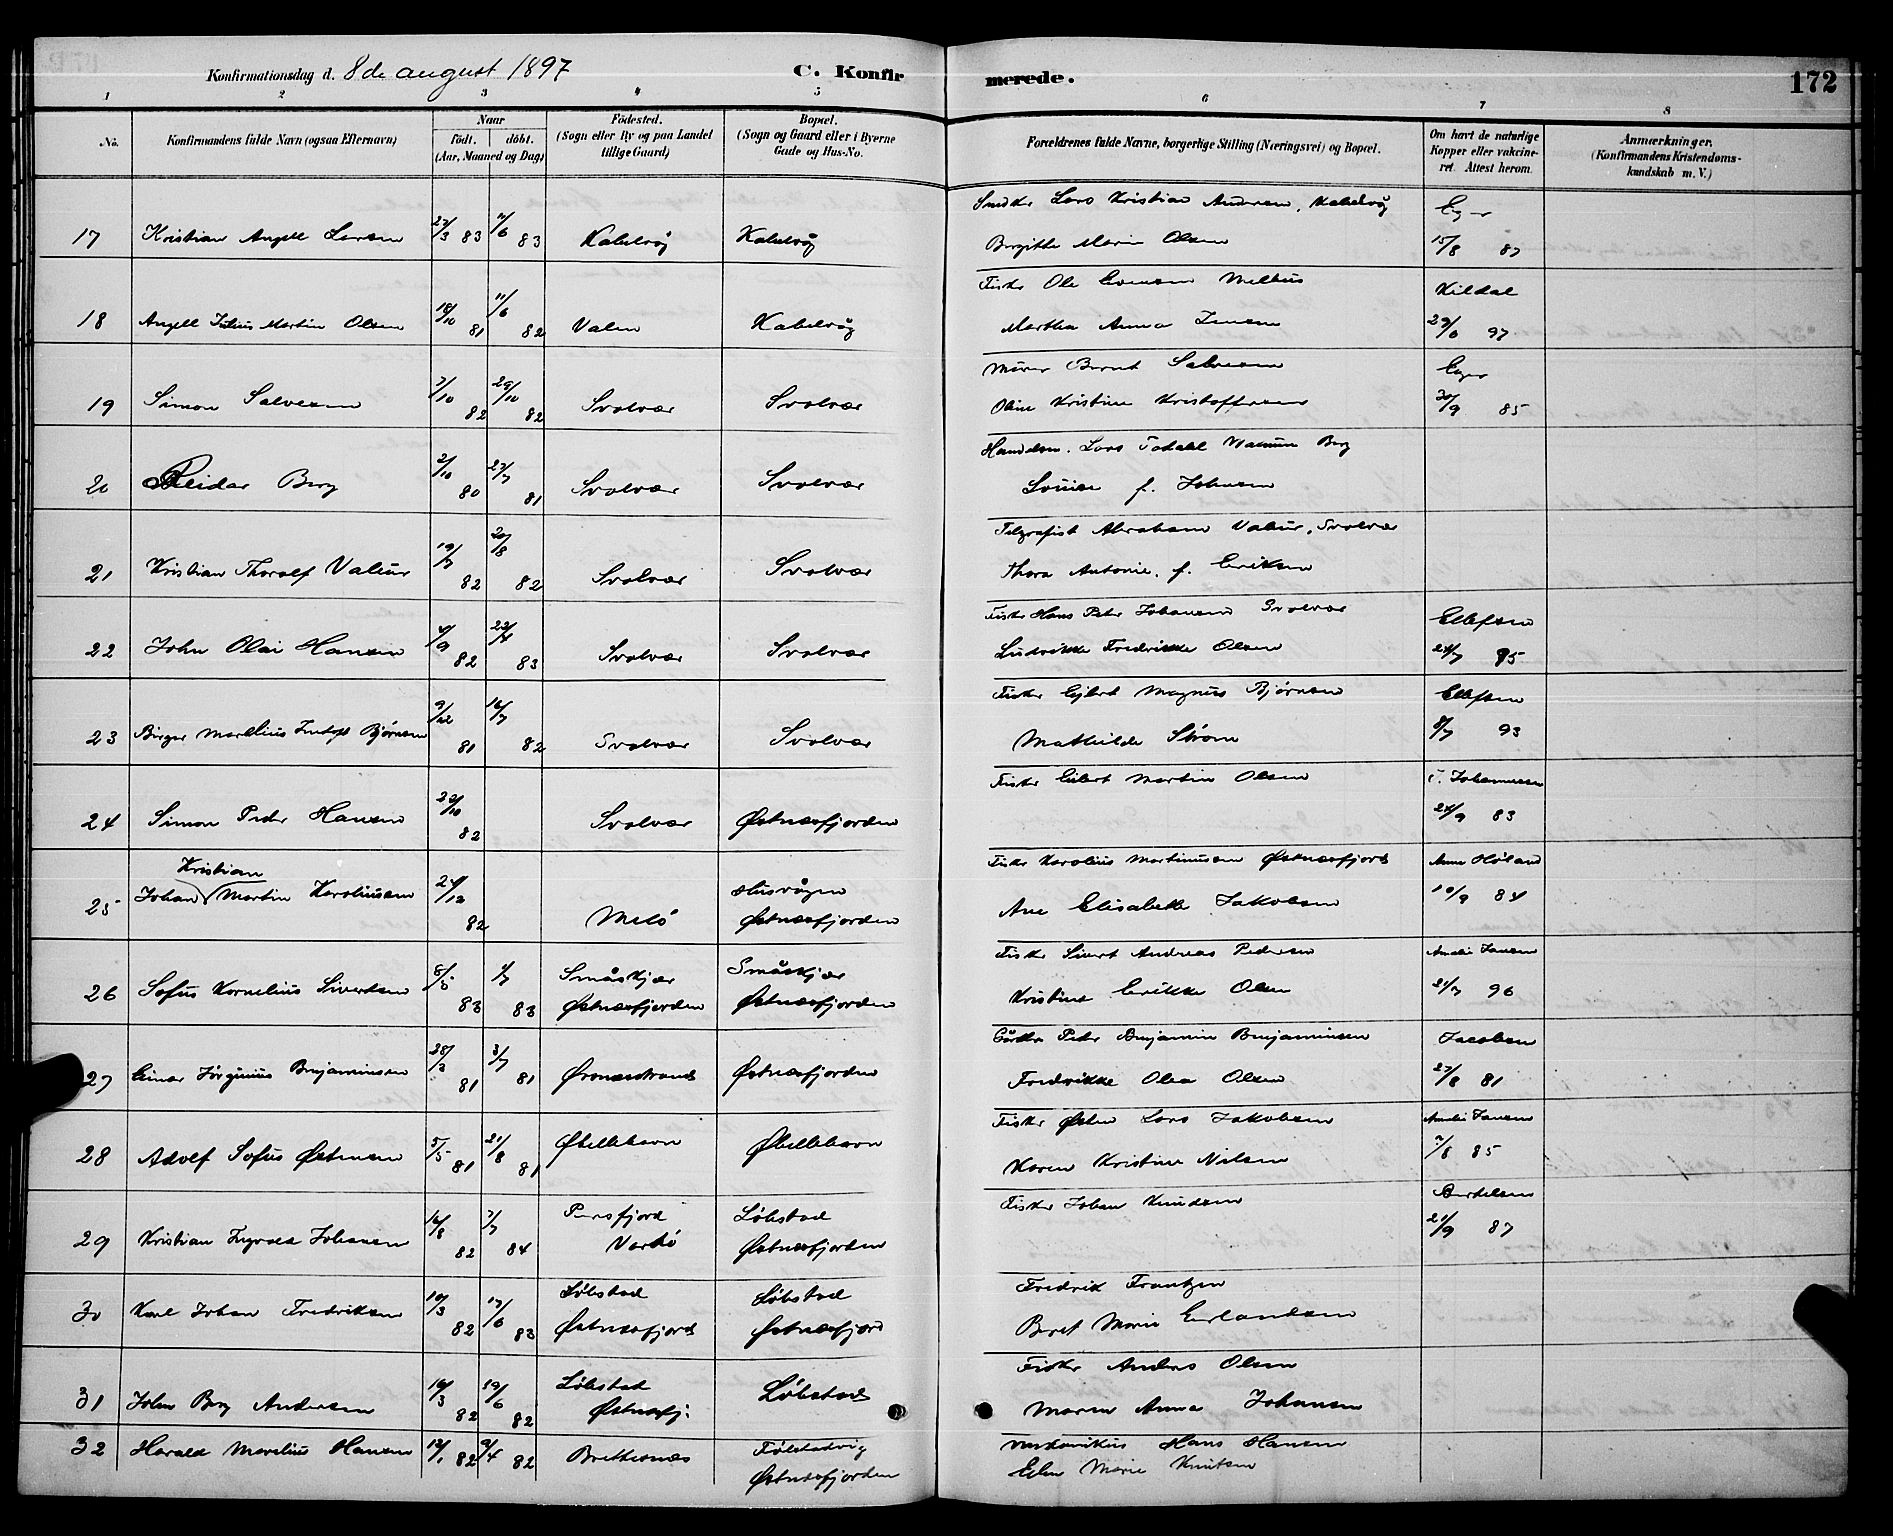 Konfirmationsdag d. 8de august 1897
C. Konfir
merede.
172
1 2 3 4 5 6 7 8
No.
Konfirmandens fulde Navn (ogsaa Efternavn)
Naar
födt. döbt.
(Aar, Maaned og Dag)
Födested.
(Sogn eller By og paa Landet
tillige Gaard)
Bopæl.
(Sogn og Gaard eller i Byerne
Gade og Hus-No.
Forældrenes fulde Navne, borgerlige Stilling (Næringsvei) og Bopæl.
Om havt de naturlige
Kopper eller vakcine-
ret. Attest herom.
Anmærkninger.
(Konfirmandens Kristendoms-
kundskab m. V.)
17 Kristian Angell Larsen 83 83 Kabelvåg Kabelvåg
Lars Kristian Andersen, Kabelvåg
Bergitte Marie Olsen
15/8 87
18 Angell Julius Martin Olsen 18/10 81 11/6 82 Valen Kabelvåg
Fisker Ole Evensen Melhus
Martha Anna Jensen
Kildal
29/6 97
19 Simon Salvesen 7/10 82 29/10 82 Svolvær Svolvær
Murer Bernt Salvesen
Oline Kristine Kristoffersen
Eger
30/9 85
20 Reidar Berg 2/10 80 27/7 81 Svolvær Svolvær
Lars Berg
Louise f. Johnsen
21 Kristian Thoralf Valeur 19/7 82 20/8 82 Svolvær Svolvær
Telegrafist Abraham Valeur, Svolvær
Thora Antonie. f. Eriksen
22 John Olai Hansen 4/9 82 83 Svolvær Svolvær
Fisker Hans Peter Johansen Svolvær
Ludvikke Fredrikke Olsen
Ellefsen
24/7 95
23 Birger Marelius Bjørnsen 9/12 81 16/7 82 Svolvær Svolvær
Fisker Ejlert Magnus Bjørnsen
Mathilde Strøm
Ellefsen
8/7 93
24 Simon Peder Hansen 22/10 82 Svolvær Østnæsfjorden
Fisker Eilert Martin Olsen
Johannessen
24/9 83
Kristian
25 Johan Martin Karoliussen 24/12 82 Melø Husvågen
Østnæsfjorden
Fisker Karolius Martinussen Østnæsfjord
Ane Elisabeth Jakobsen
10/9 84
26 Sofus Kornelius Sivertsen 8/5 83 1/7 83 Småskjær
Østnæsfjorden
Småskjær
Østnæsfjorden
Fisker Sivert Andreas Pedersen
Kristine Erikke Olsen
Amalie Jansen
21/7 96
27 Einar Jørginius Benjaminsen 28/3 81 3/7 81 Ørsnæsstrand Østnæsfjorden
Peder Benjamin Benjaminsen
Fredrikke Olea Olsen
Jacobsen
27/8 81
28 Adolf Sofus Østensen 5/5 81 21/8 81 Øhellehavn Øhellehavn
Fisker Østen Lars Jakobsen
Karen Kristine Nilsen
Amalie Jansen
7/8 85
29 Kristian Ingvald Johansen 16/8 82 7/7 84 Persfjord
Vardø
Løbstad
Østnæsfjorden
Fisker Johan Knudsen
Bertelsen
21/9 87
30 Karl Johan Fredriksen 10/3 82 17/6 83 Løbstad
Østnæsfjord
Løbstad
Østnæsfjord
Fredrik Frantzen
Beret Marie Erlandsen
31 John Berg Andersen 16/3 82 19/6 82 Løbstad
Østnæsfj:
Løbstad
Fisker Anders Olsen
Maren Anna Johansen
32 Harald Marelius Hansen 12/1 82 9/4 82 Brettesnæs
Østnæsfjorden
Hans Hansen
Marie Knutsen